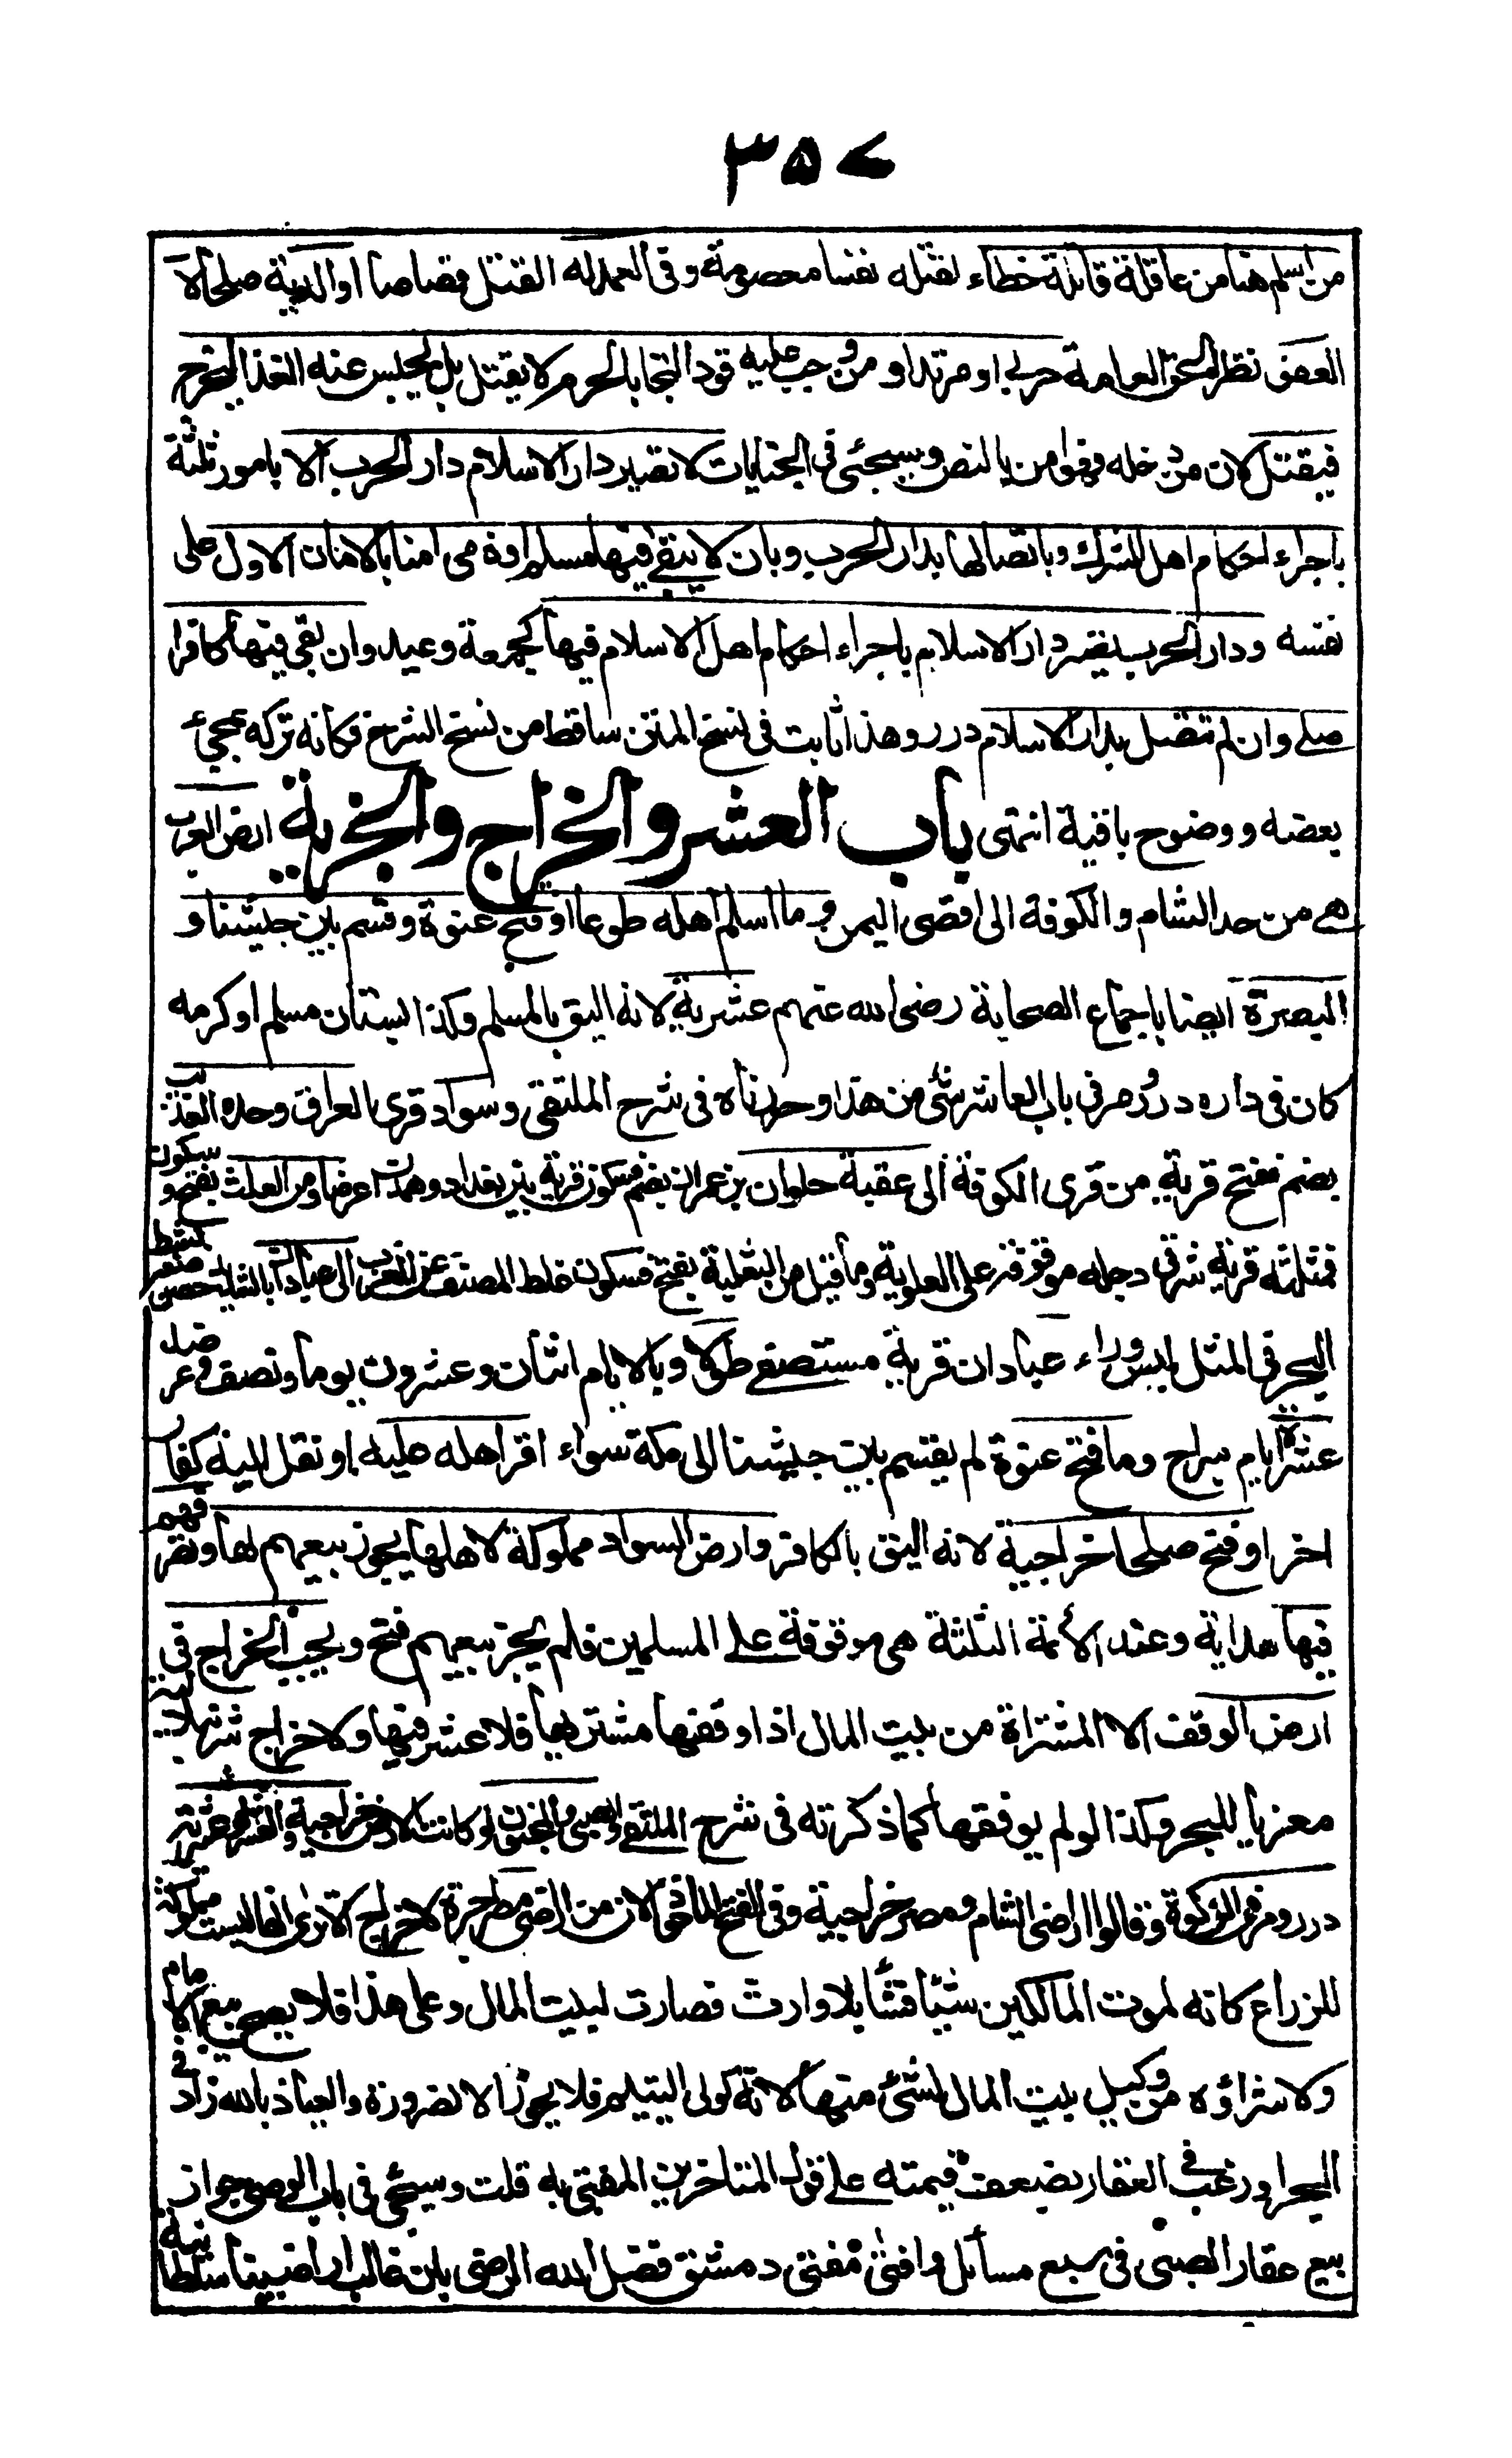 ٣٥٧
من اسلم هنا من عاقلة قاتله خطاء لقتله نفسا معصومة وفى العمد له القتل قصاصا او الدية صلحا لا
العفو نظر الحق العامة حربى او مرتد او من وجب عليه قود التجا بالحرم لا يقتل بل يحبس عنه الغذا ليخرج
فيقتل لان من دخله فهو امن بالنص وسيجئ فى الجنايات لا تصير دار الاسلام دار الحرب الا بامور ثلثة
باجراء احكام اهل الشرك وباتصالها بدار الحرب وبان لا يبقى فيها مسلم او ذمى امنا بالامان الاول على
نفسه ودار الحرب تصير دار الاسلام باجراء احكام اهل الاسلام فيها كجمعة وعيد وان بقى فيها كافر ا
صلے وان لم تتصل بدار الاسلام درر وهذا ثابت فى نسخ المتن ساقط من نسخ الشرح فكانه تركه لمجئ
بعضه ووضوح باقية انتهى باب العشر والخراج والجزية ارض العرب
هے من حد الشام والكوفة الى اقصى اليمن وما اسلم اهله طوعا او فتح عنوة وقسم بين جيشنا و
البصرة ايضا باجماع الصحابة رضى الله عنهم عشرية لانه اليق بالمسلم وكذا بستان مسلم او كرمه
كان فى داره درر ومر فى باب العاشر شئ من هذا وحررناه فى شرح الملتقى وسواد قرى العراق وحده من العذيب
بضم ففتح قرية من قرى الكوفة الى عقبة حلوان بن عمران بضم فسكون قرية بين بغداد وهمدان عرضا ومن العلث بفتح وسكون
فمثلثه قرية شرقى دجله موقوفة على العلوية وما قيل من الثعلبية بفتح فسكون غلط المصنف عن المغرب الى عبادان بالتشديد حصن صغير بشط
البحر فى المثل ليس وراء عبادان قرية مستصفے طولا وبالايام اثنان وعشرون يوما ونصف وعرضه
عشرة ايام سراج وما فتح عنوة لم يقسم بين جيشنا الى مكة سواء اقر اهله عليه او نقل اليه كفار
اخر او فتح صلحا خراجية لانه اليق بالكافر وارض السواد مملوكة لاهلها يجوز بيعهم لها وتصرفهم
فيها هداية وعند الائمة الثلثة هى موقوفة على المسلمين فلم يجز بيعهم فتح ويجب الخراج فى
ارض الوقف الا المشتراة من بيت المال اذا وقفها مشتريها فلا عشر فيها ولا خراج شرنبلالية
معزيا للبحر وكذا لو لم يوقفها كما ذكرته فى شرح الملتقے والصبى والمجنون لو كانت الارض خراجية والعشر لو عشرية
درر ومر فى الزكوة وقالوا اراضى الشام ومصر خراجية وفى الفتح الماخوذ الان من اراضى مصر اجرة لا خراج الا ترى انها ليست مملوكة
للزراع كانه لموت المالكين شيئا فشيئا بلا وارث فصارت لبيت المال وعلى هذا فلا يصح بيع الامام
ولا شراؤه من وكيل بيت المال لشئ منها لانه كولى اليتيم فلا يجوز الا لضرورة والعياذ بالله زاد فى
البحر او رغب فى العقار بضعف قيمته على قول المتاخرين المفتى به قلت وسيجئ فى باب الوصى جواز
بيع عقار الصبى فى سبع مسائل وافتى مفتى دمشق فضل الله الرومى بان غالب اراضينا سلطانية